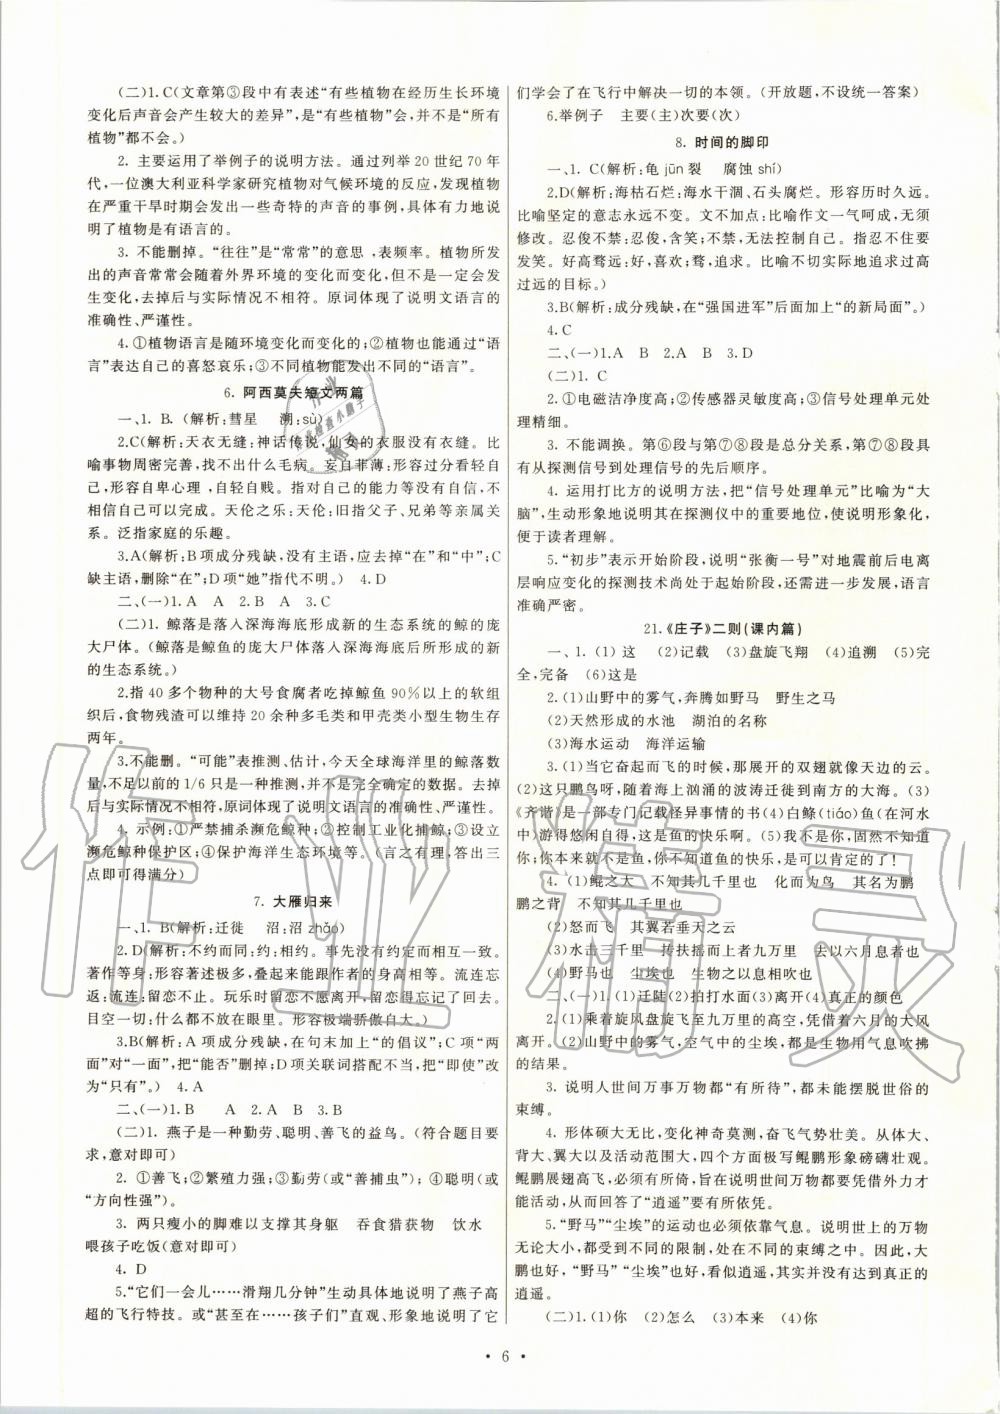 (二)1. C(文章第③段中有表述“有些植物在经历生长环境
变化后声音会产生较大的差异”,是“有些植物”会,并非“所有
植物”都不会。)
2. 主要运用了举例子的说明方法。通过列举 20 世纪 70 年
代,一位澳大利亚科学家研究植物对气候环境的反应,发现植物
在严重干旱时期会发出一些奇特的声音的事例,具体有力地说
明了植物是有语言的。
3. 不能删掉。“往往”是“常常”的意思,表频率。植物所发
出的声音常常会随着外界环境的变化而变化,但不是一定会发
生变化,去掉后与实际情况不相符。原词体现了说明文语言的
准确性、严谨性。
4. ①植物语言是随环境变化而变化的;②植物也能通过“语
言”表达自己的喜怒哀乐;③不同植物能发出不同的“语言”。
6. 阿西莫夫短文两篇
一、1. B. (解析:彗星 溯:sù)
2.C(解析:天衣无缝:神话传说,仙女的衣服没有衣缝。比
喻事物周密完善,找不出什么毛病。妄自菲薄:过分看轻自
己,形容自卑心理,自轻自贱。指对自己的能力等没有自信,不
相信自己可以完成。天伦之乐:天伦:旧指父子、兄弟等亲属关
系。泛指家庭的乐趣。
3.A(解析:B 项成分残缺,没有主语,应去掉“在”和“中”;C
缺主语,删除“在”;D 项“她”指代不明。) 4. D
二、(一)1. A A 2. A 3. C
(二)1. 鲸落是落入深海海底形成新的生态系统的鲸的庞
大尸体。(鲸落是鲸鱼的庞大尸体落入深海海底后所形成的新
的生态系统。)
2.指 40 多个物种的大号食腐者吃掉鲸鱼 90%以上的软组
织后,食物残渣可以维持 20 余种多毛类和甲壳类小型生物生存
两年。
3.不能删。“可能”表推测、估计,今天全球海洋里的鲸落数
量,不足以前的 1/6 只是一种推测,并不是完全确定的数据。去掉
后与实际情况不相符,原词体现了说明文语言的准确性、严谨性。
4. 示例:①严禁捕杀濒危鲸种;②控制工业化捕鲸;③设立
濒危鲸种保护区;④保护海洋生态环境等。(言之有理,答出三
点即可得满分)
7. 大雁归来
一、1. B(解析:迁徙 沼:沼 zhǎo)
2. D(解析:不约而同:约:相约。事先没有约定而相互一致。
著作等身:形容著述极多,叠起来能跟作者的身高相等。流连忘
返:流连:留恋不止。玩乐时留恋不愿离开;留恋得忘记了回去。
目空一切:什么都不放在眼里。形容极端骄傲自大。)
3.B(解析:A 项成分残缺,在句末加上“的倡议”;C 项“两
面”对“一面”,把“能否”删掉;D 项关联词搭配不当,把“即使”改
为“只有”。) 4. A
二、(一)1. B A 2. A 3. B
(二)1. 燕子是一种勤劳、聪明、善飞的益鸟。(符合题目要
求,意对即可)
2. ①善飞;②繁殖力强;③勤劳(或“善捕虫”);④聪明(或
“方向性强”)。
3. 两只瘦小的脚难以支撑其身躯 吞食猎获物 饮水
喂孩子吃饭(意对即可)
4. D
5.“它们一会儿……滑翔几分钟”生动具体地说明了燕子高
超的飞行特技。或“甚至在……孩子们”直观、形象地说明了它
们学会了在飞行中解决一切的本领。(开放题,不设统一答案)
6.举例子 主要(主)次要(次)
8. 时间的脚印
一、1. C(解析:龟 jūn 裂 腐蚀 shí)
2.D(解析:海枯石烂:海水干涸、石头腐烂。形容历时久远。
比喻坚定的意志永远不变。文不加点:比喻作文一气呵成,无须
修改。忍俊不禁:忍俊,含笑;不禁,无法控制自己。指忍不住要发
笑。好高骛远:好,喜欢;骛,追求。比喻不切实际地追求过高或
过远的目标。)
3.B(解析:成分残缺,在“强国进军”后面加上“的新局面”。)
4. C
二、(一)1. A B 2. B 3. D
(二)1. C
2.①电磁洁净度高;②传感器灵敏度高;③信号处理单元处
理精细。
3. 不能调换。第⑥段与第⑦⑧段是总分关系,第⑦⑧段具
有从探测信号到处理信号的先后顺序。
4. 运用打比方的说明方法,把“信号处理单元”比喻为“大
脑”,生动形象地说明其在探测仪中的重要地位,使说明形象化,
便于读者理解。
5.“初步”表示开始阶段,说明“张衡一号”对地震前后电离
层响应变化的探测技术尚处于起始阶段,还需进一步发展,语言
准确严密。
21.《庄子》二则(课内篇)
一、1. (1) 这 (2)记载 (3)盘旋飞翔 (4)追溯 (5)完
全,完备 (6)这是
2.(1)山野中的雾气,奔腾如野马 野生之马
(2)天然形成的水池 湖泊的名称
(3)海水运动 海洋运输
3.(1)当它奋起而飞的时候,那展开的双翅就像天边的云。
(2)这只鹏鸟呀,随着海上汹涌的波涛迁徙到南方的大海。(3)
《齐谐》是一部专门记载怪异事情的书(4)白鲦(tiáo)鱼在河水
中)游得悠闲自得,这就是鱼的快乐啊。(5)我不是你,固然不知道
你;你本来就不是鱼,你不知道鱼的快乐,是可以肯定的了!
4.(1)鲲之大 不知其几千里也 化而为鸟 其名为鹏
鹏之背 不知其几千里也
(2)怒而飞 其翼若垂天之云
(3)水击三千里 抟扶摇而上者九万里 去以六月息者也
(4)野马也 尘埃也 生物之以息相吹也
二、(一)1. (1)迁陡(2)拍打水面(3)离开(4)真正的颜色
2.(1)乘着旋风盘旋飞至九万里的高空,凭借着六月的大风
离开。(2)山野中的雾气,空气中的尘埃,都是生物用气息吹拂
的结果。
3. 说明人世间万事万物都“有所待”,都未能摆脱世俗的
束缚。
4. 形体硕大无比,变化神奇莫测,奋飞气势壮美。从体大、
背大、翼大以及活动范围大,四个角度的鲲鹏形象磅礴壮观。
鲲鹏展翅高飞,必须有所依凭,说明世间万物都要凭借外力才
能活动,从而回答了“逍遥”要有所依凭。
5.“野马”“尘埃”的运动也必须依靠气息。说明世上的万物
无论大小,都受到不同的限制,处在不同的束缚之中。因此,大
鹏也好,“野马”“尘埃”也罢,看似逍遥,其实都没有达到真正的
逍遥。
(二)1.(1)你 (2)怎么 (3)本来 (4)你
• 6 •
作业精灵